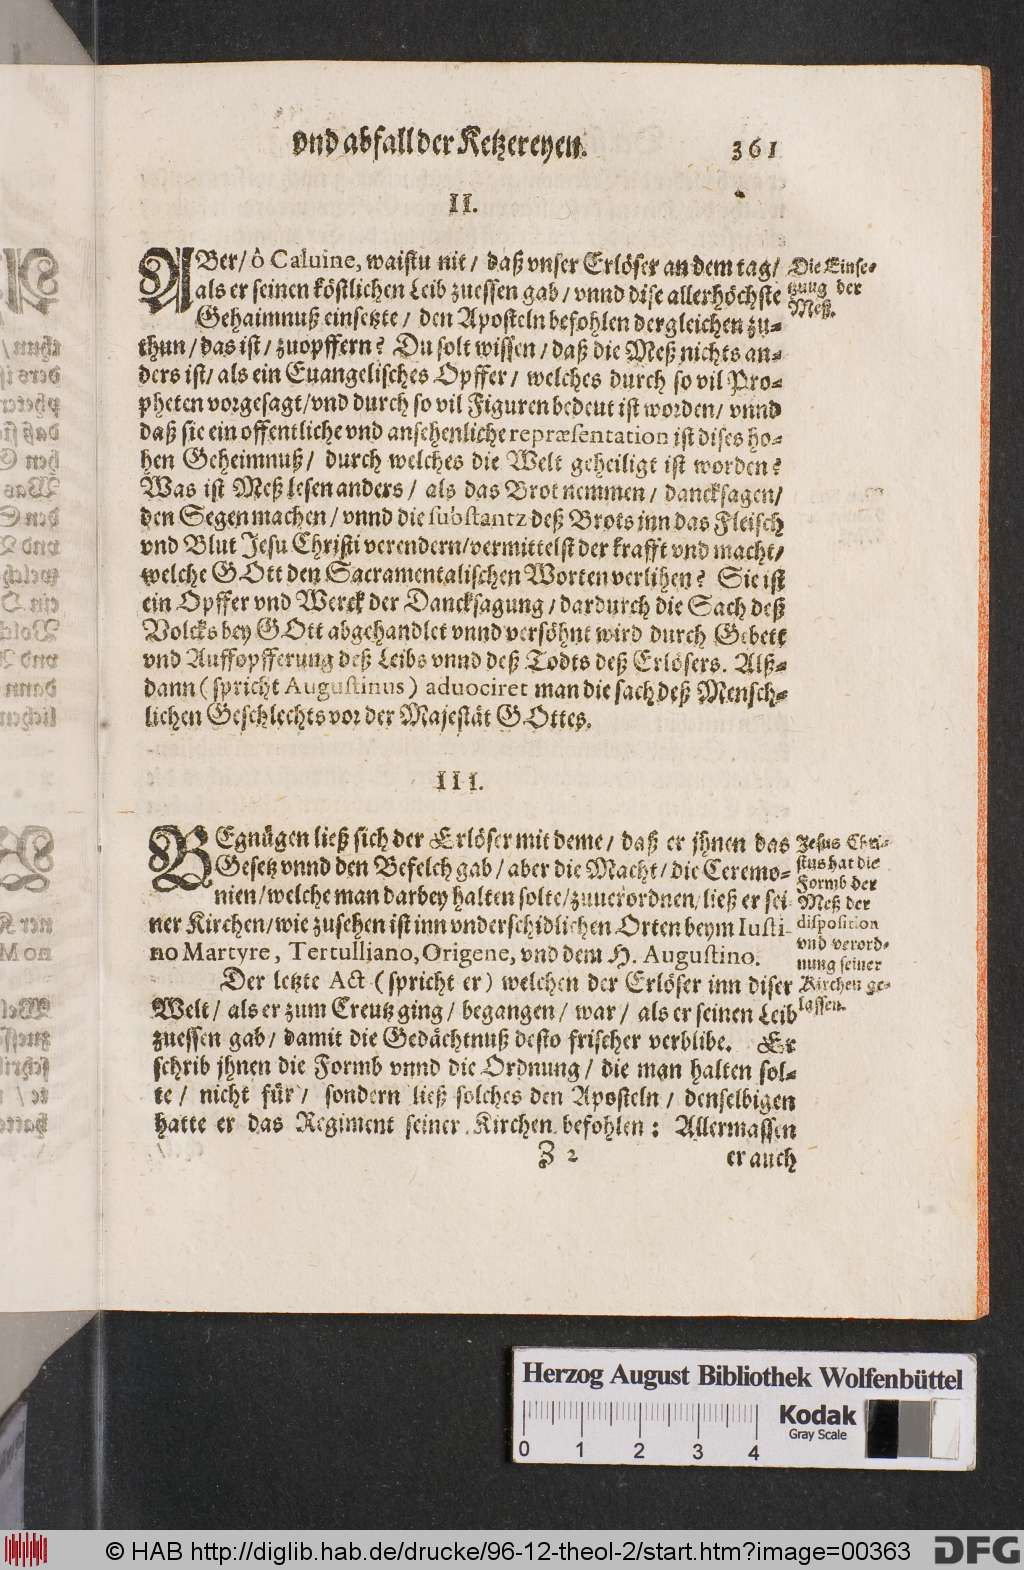 vnd abfall der Ketzereyen. 361
II.
ABer/ ô Caluine, waistu nit/ daß vnser Erlöser an dem tag/
als er seinen köstlichen Leib zuessen gab/ vnnd dise allerhöchste
Gehaimnuß einsetzte/ den Aposteln befohlen dergleichen zu-
thun/ das ist/ zuopffern? Du solt wissen/ daß die Meß nichts an-
ders ist/ als ein Euangelisches Opffer/ welches durch so vil Pro-
pheten vorgesagt/ vnd durch so vil Figuren bedeut ist worden/ vnnd
daß sie ein offentliche vnd ansehenliche repræsentation ist dises ho-
hen Geheimnuß/ durch welches die Welt geheiligt ist worden?
Was ist Meß lesen anders/ als das Brot nemmen/ dancksagen/
den Segen machen/ vnnd die substantz deß Brots inn das Fleisch
vnd Blut Jesu Christi verendern/ vermittelst der krafft vnd macht/
welche GOtt den Sacramentalischen Worten verlihen? Sie ist
ein Opffer vnd Werck der Dancksagung/ dardurch die Sach deß
Volcks bey GOtt abgehandlet vnnd versöhnt wird durch Gebett
vnd Auffopfferung deß Leibs vnnd deß Todts deß Erlösers. Alß-
dann (spricht Augustinus) aduociret man die sach deß Mensch-
lichen Geschlechts vor der Majestät GOttes.
Die Einse-
tzung der
Meß.
III.
BEgnügen ließ sich der Erlöser mit deme/ daß er jhnen das
Gesetz vnnd den Befelch gab/ aber die Macht/ die Ceremo-
nien/ welche man darbey halten solte/ zuuerordnen/ ließ er sei-
ner Kirchen/ wie zusehen ist inn vnderschidlichen Orten beym Iusti-
no Martyre, Tertulliano, Origene, vnd dem H. Augustino.
Der letzte Act (spricht er) welchen der Erlöser inn diser
Welt/ als er zum Creutz ging/ begangen/ war/ als er seinen Leib
zuessen gab/ damit die Gedächtnuß desto frischer verblibe. Er
schrib jhnen die Formb vnnd die Ordnung/ die man halten sol-
te/ nicht für/ sondern ließ solches den Aposteln/ denselbigen
hatte er das Regiment seiner Kirchen befohlen: Allermassen
Jesus Chri-
stus hat die
Formb der
Meß der
disposition
vnd verord-
nung seiner
Kirchen ge-
lassen.
Z 2 er auch
Herzog August Bibliothek Wolfenbüttel
0 1 2 3 4
Kodak
Gray Scale
© HAB http://diglib.hab.de/drucke/96-12-theol-2/start.htm?image=00363
DFG